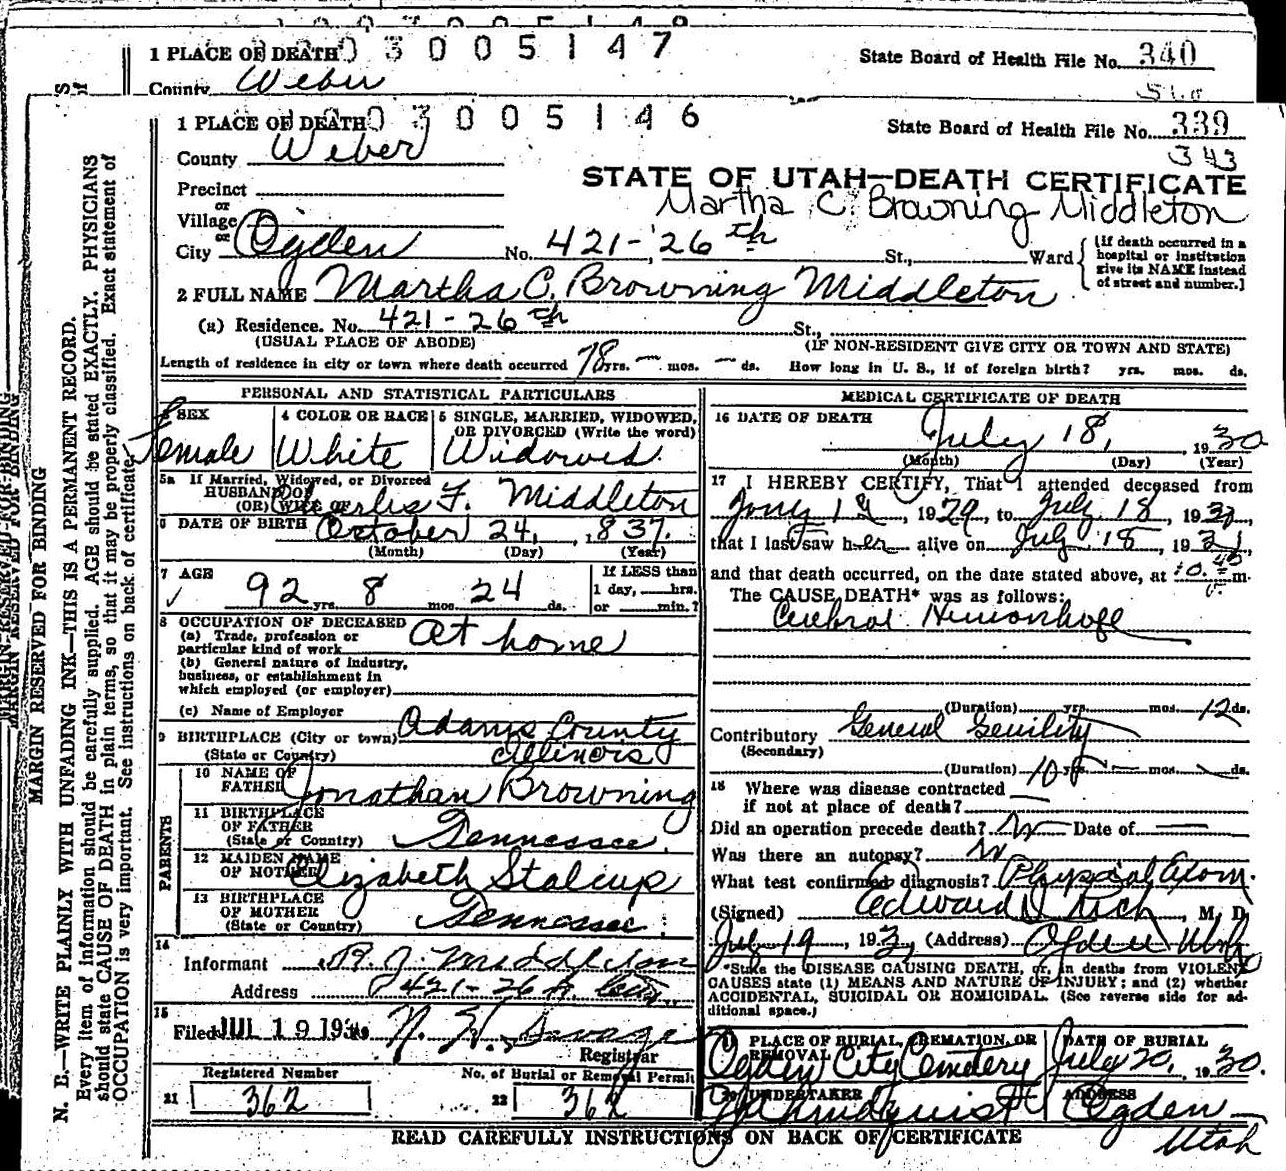 1 PLACE OF DEATH 003005147 State Board of Health File No. 340
County Weber
1 PLACE OF DEATH 003005146 State Board of Health File No. 339
343
County Weber
STATE OF UTAH—DEATH CERTIFICATE
Precinct
Martha C. Browning Middleton
or
Village
or
City Ogden No. 421-26th St., Ward {[If death occurred in a hospital or institution give its NAME instead of street and number.]
2 FULL NAME Martha C. Browning Middleton
(a) Residence. No. 421-26th St.,
(USUAL PLACE OF ABODE) (IF NON-RESIDENT GIVE CITY OR TOWN AND STATE)
Length of residence in city or town where death occurred 78 yrs. — mos. — ds. How long in U. S., if of foreign birth? yrs. mos. ds.
PERSONAL AND STATISTICAL PARTICULARS
SEX
Female
4 COLOR OR RACE
White
5 SINGLE, MARRIED, WIDOWED,
OR DIVORCED (Write the word)
Widowed
5a If Married, Widowed, or Divorced
HUSBAND OF
(OR) WIFE OF Charles F. Middleton
6 DATE OF BIRTH October 24, 1837.
(Month) (Day) (Year)
7 AGE
92 yrs. 8 mos. 24 ds.
If LESS than
1 day, hrs.
or min.?
8 OCCUPATION OF DECEASED
(a) Trade, profession or
particular kind of work At home
(b) General nature of industry,
business, or establishment in
which employed (or employer)
(c) Name of Employer
9 BIRTHPLACE (City or town) Adams County
(State or Country) Illinois
PARENTS
10 NAME OF
FATHER Jonathan Browning
11 BIRTHPLACE
OF FATHER
(State or Country) Tennessee.
12 MAIDEN NAME
OF MOTHER Elizabeth Stalcup
13 BIRTHPLACE
OF MOTHER
(State or Country) Tennessee.
14
Informant R. J. Middleton
Address 421-26 St. City
15
Filed JUL 19 193 N. H. Savage
Registrar
Registered Number No. of Burial or Removal Permit
21 362 22 362
MEDICAL CERTIFICATE OF DEATH
16 DATE OF DEATH July 18, 1930
(Month) (Day) (Year)
17 I HEREBY CERTIFY, That I attended deceased from
1929, to July 18, 193
that I last saw her alive on July 18, 193
and that death occurred, on the date stated above, at 10.45 m.
The CAUSE DEATH* was as follows:
Cerebral Hemorrhage
(Duration) yrs. mos. 12 ds.
Contributory General Senility
(Secondary)
(Duration) 10 yrs. — mos. ds.
18 Where was disease contracted
if not at place of death?
Did an operation precede death? No Date of —
Was there an autopsy? No
What test confirmed diagnosis? Physical Exam.
(Signed) Edward , M. D.
July 19, 193 (Address) Ogden Utah
*State the DISEASE CAUSING DEATH, or, in deaths from VIOLENT
CAUSES state (1) MEANS AND NATURE OF INJURY; and (2) whether
ACCIDENTAL, SUICIDAL OR HOMICIDAL. (See reverse side for additional space.)
PLACE OF BURIAL, CREMATION, OR
REMOVAL
Ogden City Cemetery
DATE OF BURIAL
July 20, 1930.
20 UNDERTAKER
ADDRESS
Ogden
Utah
READ CAREFULLY INSTRUCTIONS ON BACK OF CERTIFICATE
MARGIN RESERVED FOR BINDING
N. B.—WRITE PLAINLY WITH UNFADING INK—THIS IS A PERMANENT RECORD.
Every item of information should be carefully supplied. AGE should be stated EXACTLY. PHYSICIANS
should state CAUSE OF DEATH in plain terms, so that it may be properly classified. Exact statement of
OCCUPATION is very important. See instructions on back of certificate.